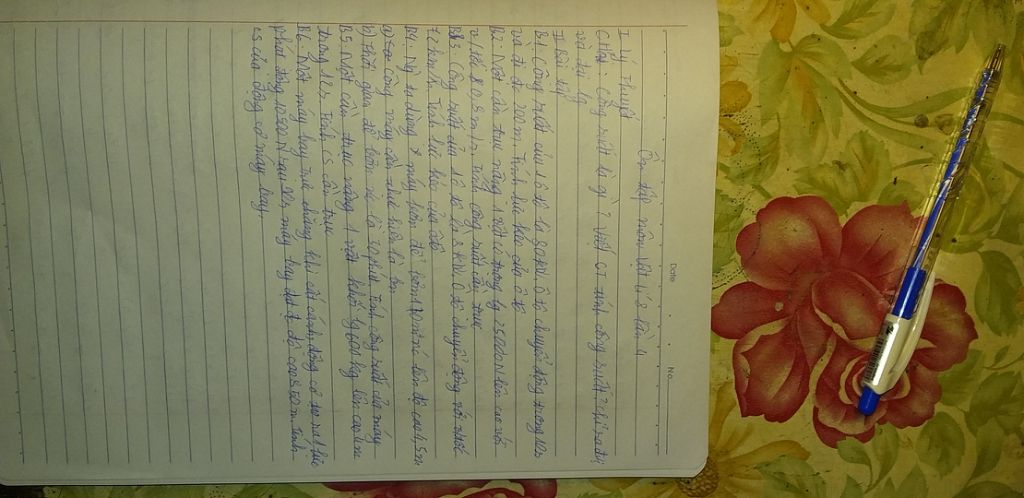 Date
No.
Ôn tập môn Vật Lí 8 lần 4
I Lý Thuyết
Câu 1: Công suất là gì? Viết CT tính công suất? chỉ ra đơn
vị đại lg
II Bài tập
B1. Công suất của 1 ô tô là 80kW ô tô chuyển động trong
và đi đc 200m. Tính lực kéo của ô tô
B2: Một cần trục nâng 1 vật có trọng lg 25000N lên cao với
v là 0,8 m/s. Tính công suất cần trục
B3. Công suất của 1 ô tô là 8kW ô tô chuyển động với
km/h. Tính lực kéo của ô tô
B4. Ng ta dùng 1 máy bơm để bơm nước lên độ cao 4,5m
a) công máy cần thực hiện là bn
b) thời gian để bơm nc là 30 phút. Tính công suất của máy
B5. Một cần trục nâng 1 vật khối lg 600kg lên cao
trong 12s. Tính cs cần trục
B6. Một máy bay trực thăng khi cất cánh, động cơ tạo ra 1 lực
phát động 10500N sau 90s máy bay đạt đc độ cao 850m. Tính
cs của động cơ máy bay.